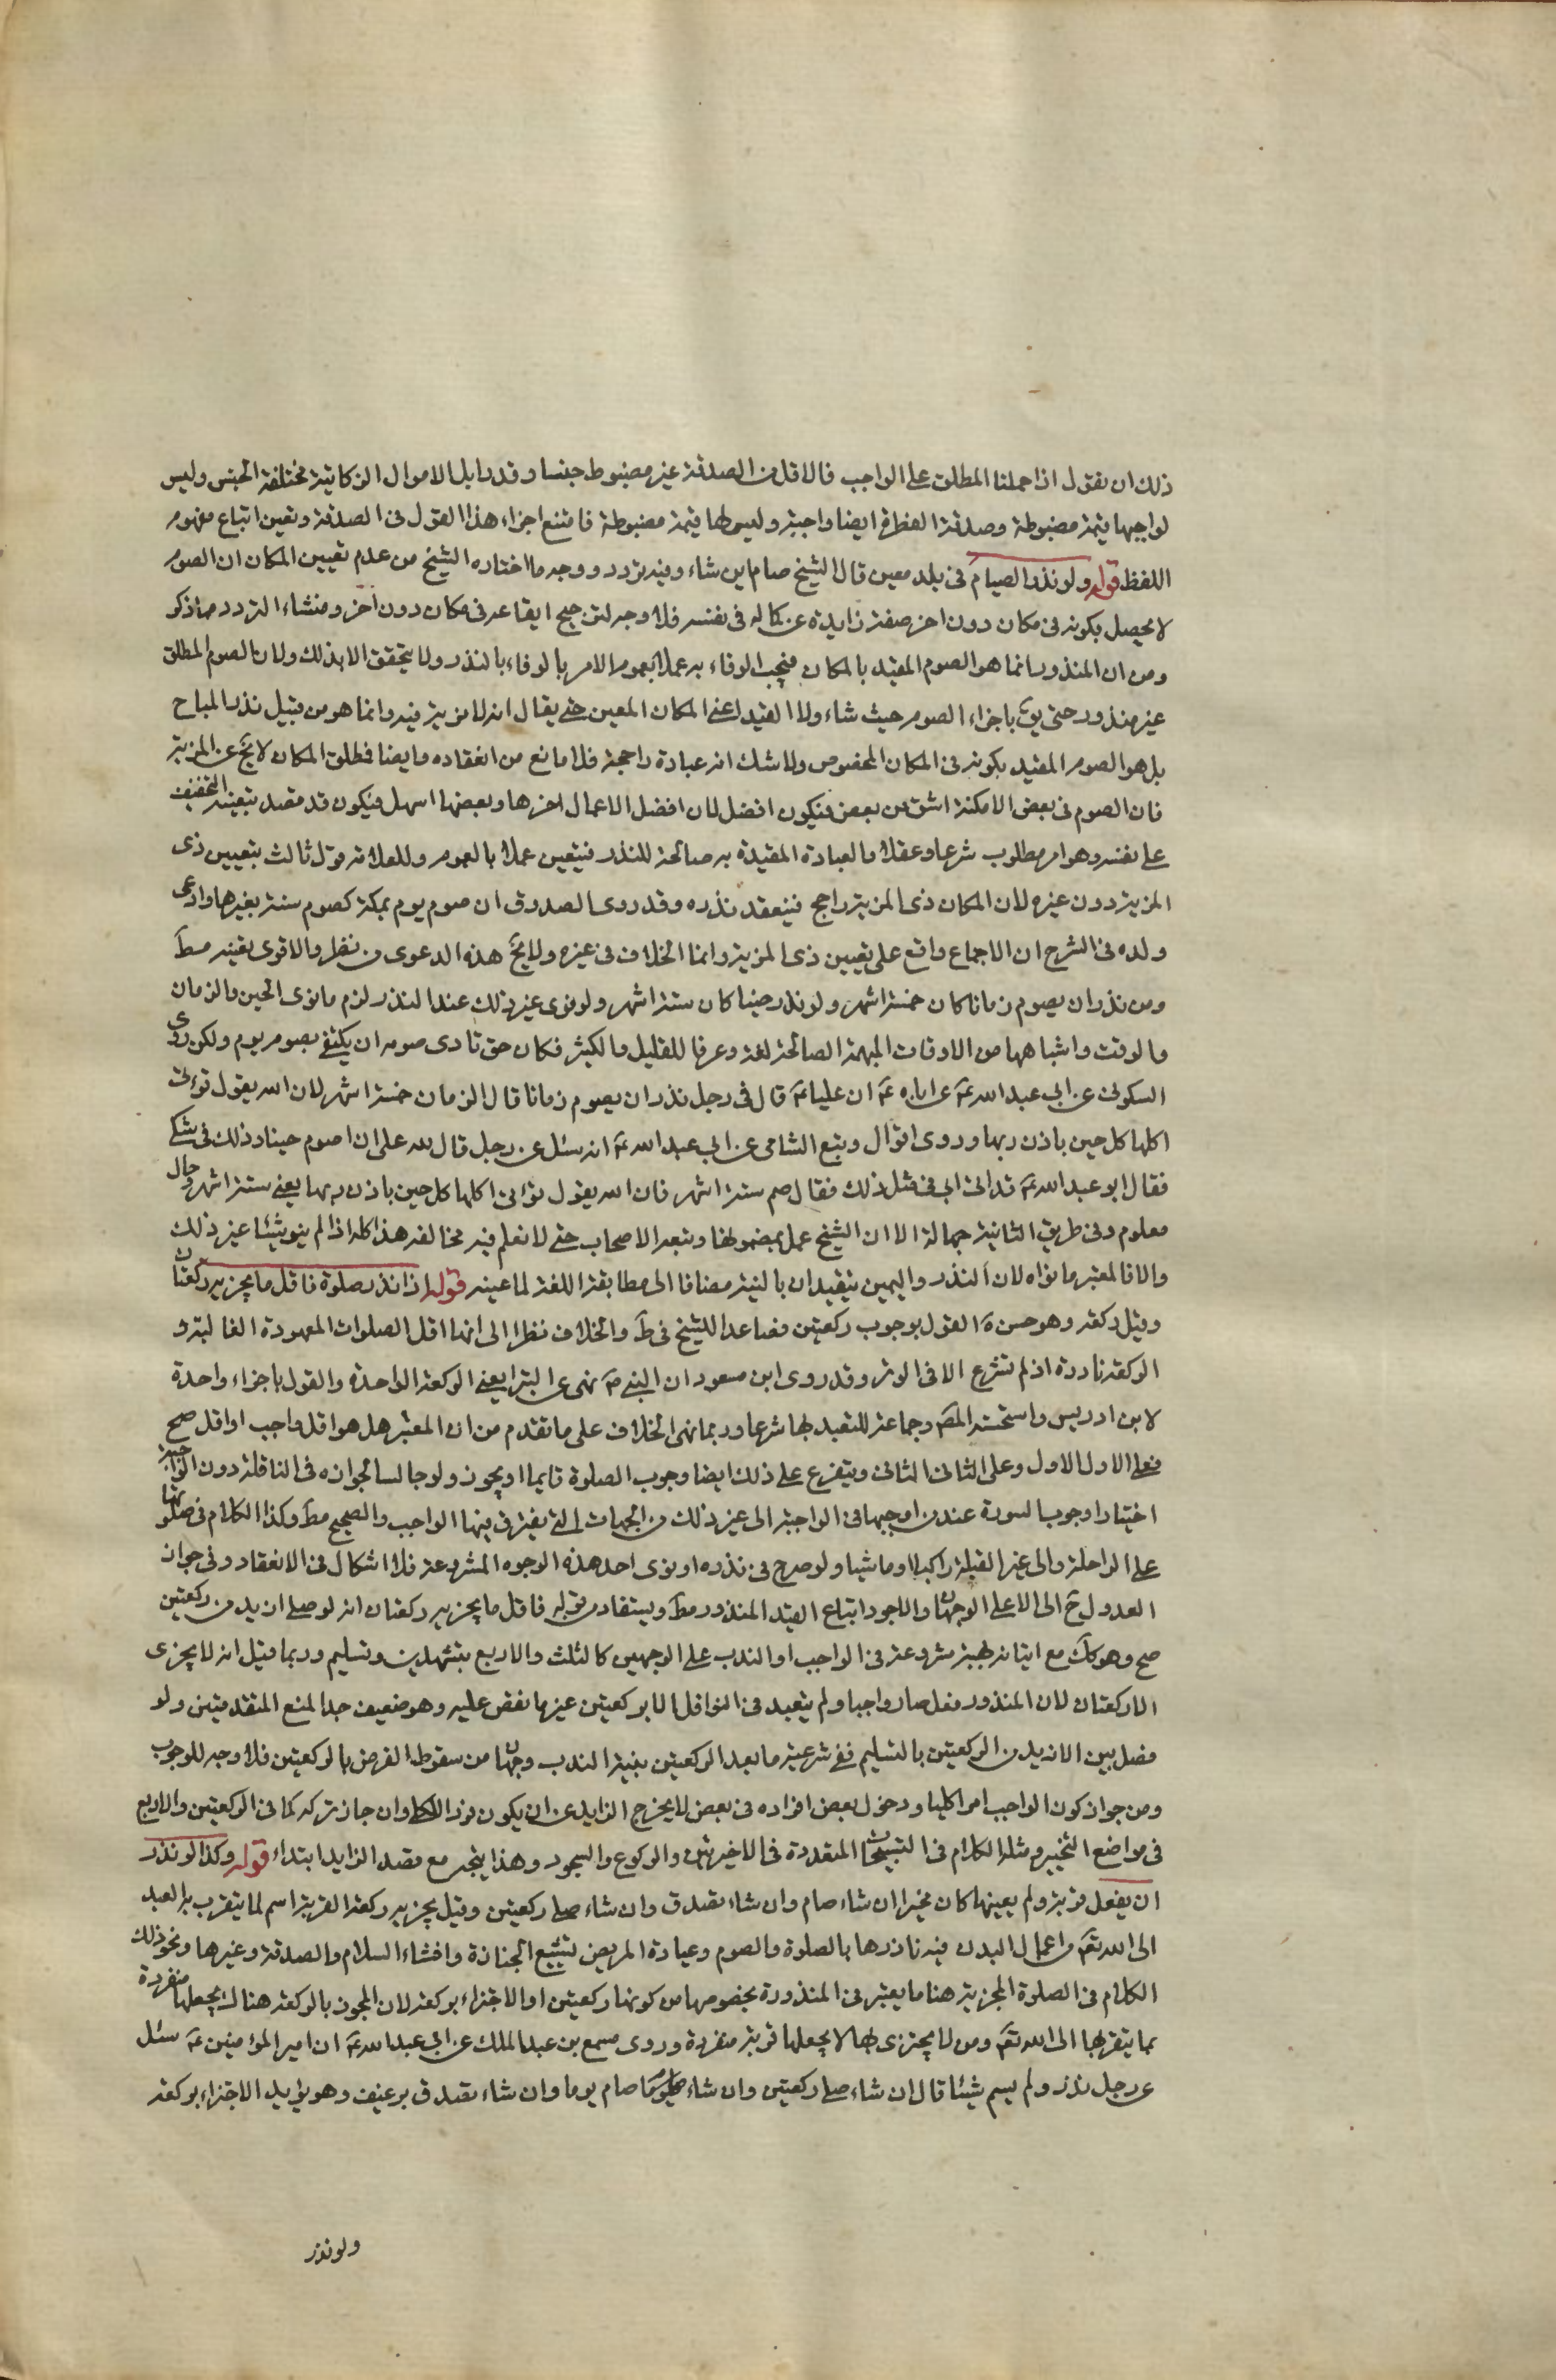 ذلك ان نقول اذا حملنا المطلق على الواجب فالاقل من الصدقة غير مضبوط جنسا وقدرا بل الاموال الزكاتية مختلفة الجنس وليس
لواجبها قيمة مضبوطة وصدقة الفطرة ايضا واجبة وليس لها قيمة مضبوطة فامتنع اجزاء هذا القول في الصدقة وتعين اتباع مفهوم
اللفظ قوله ولو نذر الصيام في بلد معين قال الشيخ صام اين شاء وفيه تردد ووجه ما اختاره الشيخ من عدم تعيين المكان ان الصوم
لا يحصل بكونه في مكان دون اخر صفة زايدة عن كماله في نفسه فلا وجه لترجيح ايقاعه في مكان دون اخر ومنشاء التردد مما ذكر
ومن ان المنذور انما هو الصوم المقيد بالمكان فيجب الوفاء به عملا بعموم الامر بالوفاء بالنذر ولا يتحقق الا بذلك ولان الصوم المطلق
غير منذور حتى يق باجزاء الصوم حيث شاء ولا القيد اعني المكان المعين حتى يقال انه لا مزية فيه وانما هو من قبيل نذر المباح
بل هو الصوم المقيد بكونه في المكان المخصوص ولا شك انه عبادة راجحة فلا مانع من انعقاده وايضا فطلق المكان لا يخ عن المزية
فان الصوم في بعض الامكنة اشق من بعض فيكون افضل لان افضل الاعمال احمزها وبعضها اسهل فيكون قد قصد بتعينه التخفيف
على نفسه وهو امر مطلوب شرعا وعقلا والعبادة المقيدة به صالحة للنذر فيتعين عملا بالعموم وللعلامة قول ثالث بتعيين ذي
المزية دون غيره لان المكان ذي المزية راجح فينعقد نذره وقد روى الصدوق ان صوم يوم بمكة كصوم سنة بغيرها وادعى
ولده في الشرح ان الاجماع واقع على تعيين ذي المزية وانما الخلاف في غيره ولا يخ هذه الدعوى من نظر والاقوى تعينه مط
ومن نذر ان يصوم زمانا كان خمسة اشهر ولو نذر حينا كان ستة اشهر ولو نوى غير ذلك عند النذر لزم ما نوى الحين والزمان
والوقت واشباهها من الاوقات المبهمة الصالحة لغة وعرفا للقليل والكثير فكان حق نادى صومه ان يكتفي بصوم يوم ولكن روى
السكوني عن ابي عبد الله ع عن ابايه ع ان عليا ع قال في رجل نذر ان يصوم زمانا قال الزمان خمسة اشهر لان الله يقول تؤتي
اكلها كل حين باذن ربها وروى ابو الربيع الشامي عن ابي عبد الله ع انه سئل عن رجل قال لله علي ان اصوم حينا وذلك في شكر
فقال ابو عبد الله ع قد اتى ابي في مثل ذلك فقال صم ستة اشهر فان الله يقول تؤتي اكلها كل حين باذن ربها يعني ستة اشهر وحال
معلوم وفي طريق الثانية جهالة الا ان الشيخ عمل بمضمونها وتبعه الاصحاب حتى لا نعلم فيه مخالفه هذا كله اذا لم ينو شيئا غير ذلك
والا فالمعتبر ما نواه لان النذر واليمين يتقيدان بالنية مضافا الى مطابقة اللغة لما عينه قوله اذا نذر صلوة فاقل ما يجزيه ركعتان
وقيل ركعة وهو حسن القول بوجوب ركعتين فصاعدا للشيخ في ط والخلاف نظرا الى انها اقل الصلوات المعهودة الغالبة و
الركعة نادرة اذ لم تشرع الا في الوتر وقد روى ابن مسعود ان النبي ص نهى عن البتراء يعني الركعة الواحدة والقول باجزاء واحدة
لابن ادريس واستحسنه المص وجماعة للتعبد بها شرعا وربما بني الخلاف على ما تقدم من ان المعتبر هل هو اقل واجب او اقل صحيح
فعلى الاول الاول وعلى الثاني الثاني ويتفرع على ذلك ايضا وجوب الصلوة قايما او يجوز ولو جالسا لجوازه في النافلة دون الواجبة
اختيارا ووجوب السورة عند من اوجبها في الواجبة الى غير ذلك من الجهات التي يفترق فيها الواجب والصحيح مط وكذا الكلام في صلوتها
على الراحلة والى غير القبلة راكبا او ماشيا ولو صرح في نذره او نوى احد هذه الوجوه المشروعة فلا اشكال في الانعقاد وفي جواز
العدول ح الى الاعلى الوجهان والاجود اتباع القيد المنذور مط ويستفاد من قوله فاقل ما يجزيه ركعتان انه لو صلى ازيد من ركعتين
صح وهو كك مع اتيانه بهيئة مشروعة في الواجب او الندب على الوجهين كالثلث والاربع بتشهدين وتسليم وربما قيل انه لا يجزى
الا ركعتان لان المنذور نفل صار واجبا ولم يتعبد في النوافل الا بركعتين غير ما نص عليه وهو ضعيف جدا لمنع المقدمتين ولو
فصل بين الازيد من الركعتين بالتسليم ففي شرعية ما بعد الركعتين بنية الندب وجهان من سقوط الفرض بالركعتين فلا وجه للوجوب
ومن جواز كون الواجب امرا كليا ودخول بعض افراده في بعض لا يخرج الزايد عن ان يكون فردا للكلي وان جاز تركه كما في الركعتين والاربع
في مواضع التخيير ومثله الكلام في التسبيحات المتعددة في الاخيرتين والركوع والسجود وهذا يتجه مع قصد الزايد ابتداء قوله وكذا لو نذر
ان يفعل قربة ولم يعينها كان مخيرا ان شاء صام وان شاء تصدق وان شاء صلى ركعتين وقيل يجزيه ركعة القربة اسم لما يتقرب به العبد
الى الله تع من اعمال البدن فيبر ناذرها بالصلوة والصوم وعيادة المريض تشييع الجنازة وافشاء السلام والصدقة وغيرها ونحو ذلك
الكلام في الصلوة المجزية هنا ما يعتبر في المنذورة بخصوصها من كونها ركعتين او الاجتزاء بركعة لان المجوز بالركعة هناك يجعلها منفردة
مما يتقرب بها الى الله تع ومن لا يجتزى بها لا يجعلها قربة منفردة وروى مسمع بن عبد الملك عن ابي عبد الله ع ان امير المؤمنين ع سئل
عن رجل نذر ولم يسم شيئا قال ان شاء صلى ركعتين وان شاء صام يوما وان شاء تصدق برغيف وهو يؤيد الاجتزاء بركعة
ولو نذر